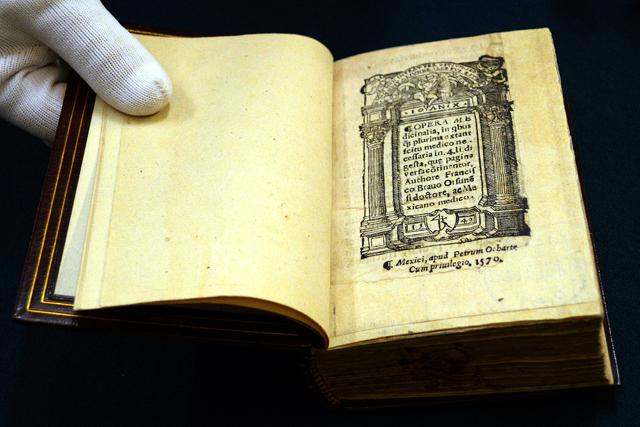 · IOVANIX ·
¶ OPERA ME
dicinalia, in qbus
q̃ plurima extant
scitu medico ne-
cessaria in .4. li di
gesta, que pagina
versa cõtinentur,
Authore Francis
co Bravo Orsunẽ
si doctore, ac Me
xicano medico.
¶ Mexici, apud Petrum Ocharte
Cum privilegio, 1570.